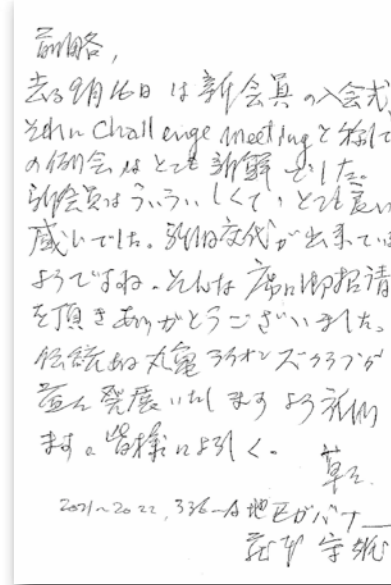 前略、
去る9月16日は新会員の入会式、
それに Challenge Meeting と称して
の例会はとても新鮮でした。
新会員はういういしくて、とても良い
感じでした。新旧交代が出来ている
ようですね。そんな席に御招請
を頂きありがとうございました。
伝統ある丸亀ライオンズクラブが
益々発展いたしますよう祈ります
ます。皆様によろしく。
草々.
2021~2022, 336-A地区ガバナー